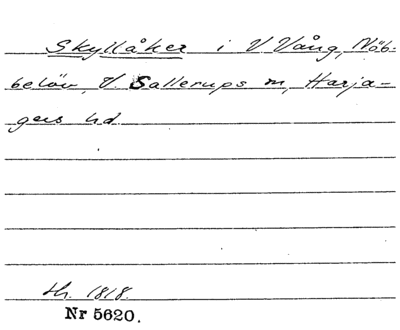 Skyllåker i V Vång, Nöb-
belöv, V. Sallerups m, Harja-
gers hd
th. 1818.
Nr 5620.